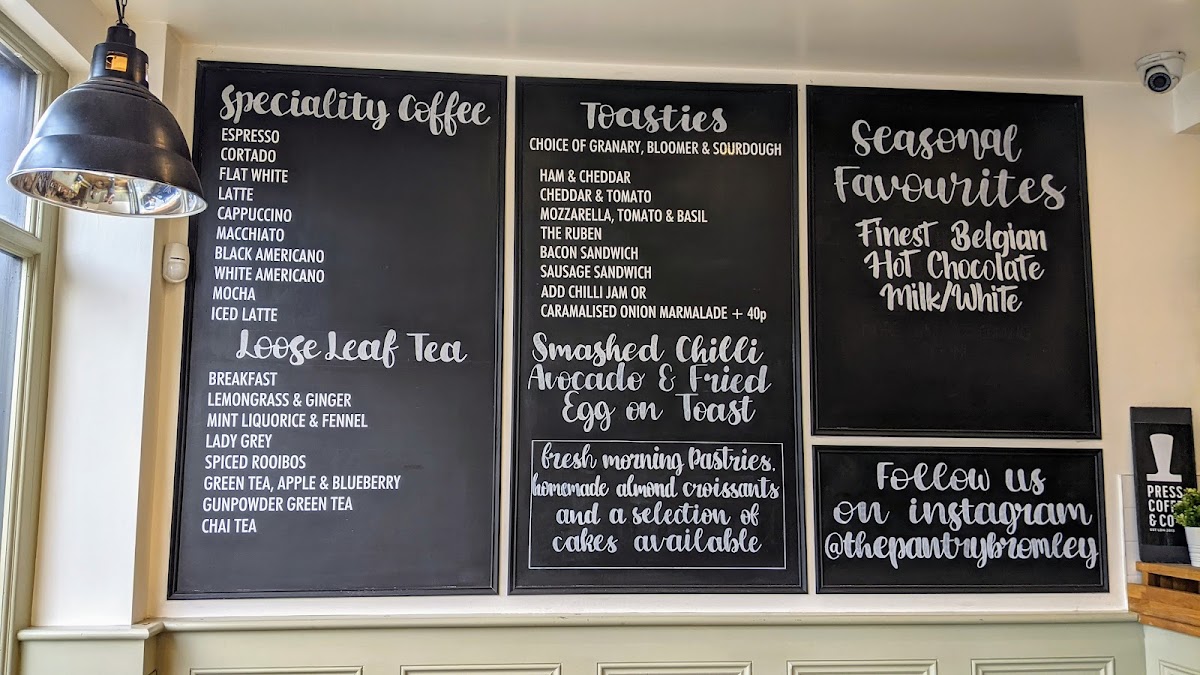 Speciality Coffee
ESPRESSO
CORTADO
FLAT WHITE
LATTE
CAPPUCCINO
MACCHIATO
BLACK AMERICANO
WHITE AMERICANO
MOCHA
ICED LATTE
Loose Leaf Tea
BREAKFAST
LEMONGRASS & GINGER
MINT LIQUORICE & FENNEL
LADY GREY
SPICED ROOIBOS
GREEN TEA, APPLE & BLUEBERRY
GUNPOWDER GREEN TEA
CHAI TEA
Toasties
CHOICE OF GRANARY, BLOOMER & SOURDOUGH
HAM & CHEDDAR
CHEDDAR & TOMATO
MOZZARELLA, TOMATO & BASIL
THE RUBEN
BACON SANDWICH
SAUSAGE SANDWICH
ADD CHILLI JAM OR
CARAMALISED ONION MARMALADE + 40p
Smashed Chilli
Avocado & Fried
Egg on Toast
fresh morning Pastries,
homemade almond croissants
and a selection of
cakes available
Seasonal
Favourites
Finest Belgian
Hot Chocolate
Milk/White
Follow us
on instagram
@thepantrybromley
PRESS
COFF
& CO